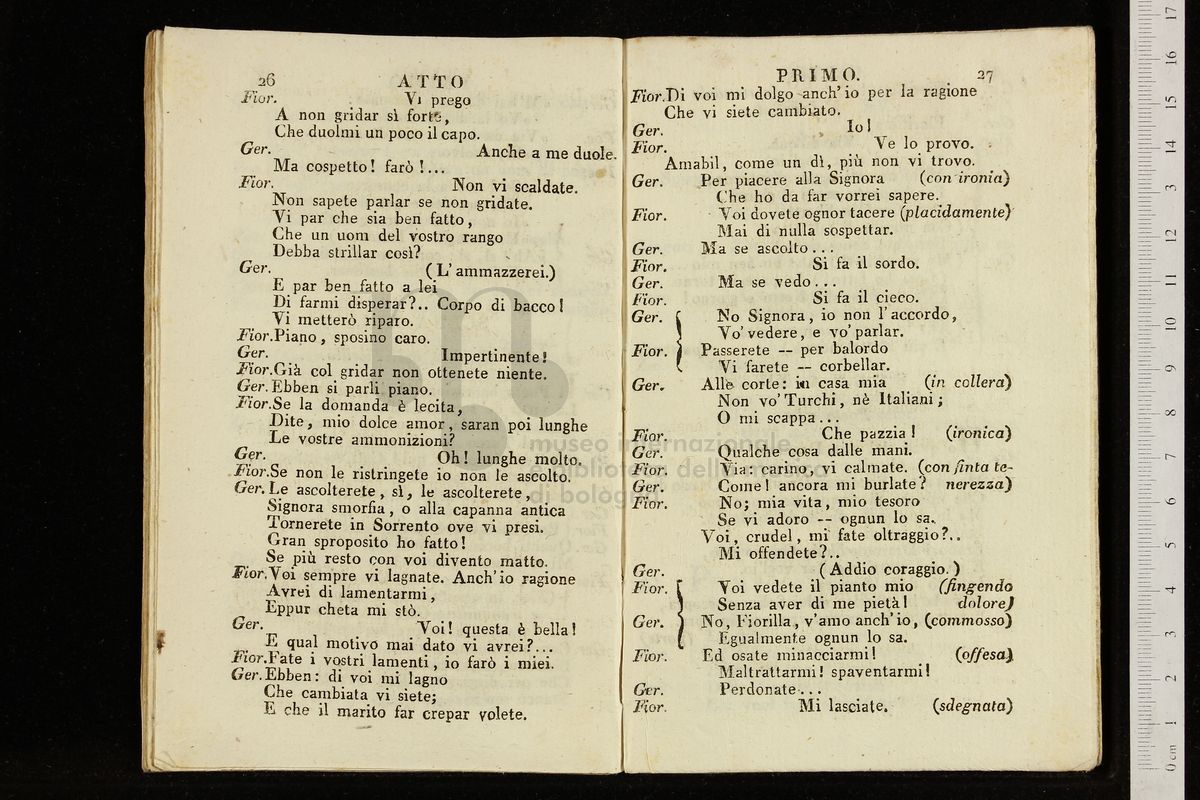 26 ATTO
Fior. Vi prego
A non gridar sì forte,
Che duolmi un poco il capo.
Ger. Anche a me duole.
Ma cospetto! farò!...
Fior. Non vi scaldate.
Non sapete parlar se non gridate.
Vi par che sia ben fatto,
Che un uom del vostro rango
Debba strillar così?
Ger. (L'ammazzerei.)
E par ben fatto a lei
Di farmi disperar?.. Corpo di bacco!
Vi metterò riparo.
Fior. Piano, sposino caro.
Ger. Impertinente!
Fior. Già col gridar non ottenete niente.
Ger. Ebben si parli piano.
Fior. Se la domanda è lecita,
Dite, mio dolce amor, saran poi lunghe
Le vostre ammonizioni?
Ger. Oh! lunghe molto.
Fior. Se non le ristringete io non le ascolto.
Ger. Le ascolterete, sì, le ascolterete,
Signora smorfia, o alla capanna antica
Tornerete in Sorrento ove vi presi.
Gran sproposito ho fatto!
Se più resto con voi divento matto.
Fior. Voi sempre vi lagnate. Anch'io ragione
Avrei di lamentarmi,
Eppur cheta mi stò.
Ger. Voi! questa è bella!
E qual motivo mai dato vi avrei?...
Fior. Fate i vostri lamenti, io farò i miei.
Ger. Ebben: di voi mi lagno
Che cambiata vi siete;
E che il marito far crepar volete.
PRIMO. 27
Fior. Di voi mi dolgo anch'io per la ragione
Che vi siete cambiato.
Ger. Io!
Fior. Ve lo provo.
Amabil, come un dì, più non vi trovo.
Ger. Per piacere alla Signora (con ironia)
Che ho da far vorrei sapere.
Fior. Voi dovete ognor tacere (placidamente)
Mai di nulla sospettar.
Ger. Ma se ascolto...
Fior. Si fa il sordo.
Ger. Ma se vedo...
Fior. Si fa il cieco.
Ger. No Signora, io non l'accordo,
Vo' vedere, e vo' parlar.
Fior. Passerete -- per balordo
Vi farete -- corbellar.
Ger. Alle corte: in casa mia (in collera)
Non vo' Turchi, nè Italiani;
O mi scappa...
Fior. Che pazzia! (ironica)
Ger. Qualche cosa dalle mani.
Fior. Via: carino, vi calmate. (con finta te-
Ger. Come! ancora mi burlate? nerezza)
Fior. No; mia vita, mio tesoro
Se vi adoro -- ognun lo sa.
Voi, crudel, mi fate oltraggio?..
Mi offendete?..
Ger. (Addio coraggio.)
Fior. Voi vedete il pianto mio (fingendo
Senza aver di me pietà! dolore)
Ger. No, Fiorilla, v'amo anch'io, (commosso)
Egualmente ognun lo sa.
Fior. Ed osate minacciarmi! (offesa)
Maltrattarmi! spaventarmi!
Ger. Perdonate...
Fior. Mi lasciate. (sdegnata)
museo internazionale
e biblioteca della musica
di bologna
0 cm 1 2 3 4 5 6 7 8 9 10 11 12 13 14 15 16 17